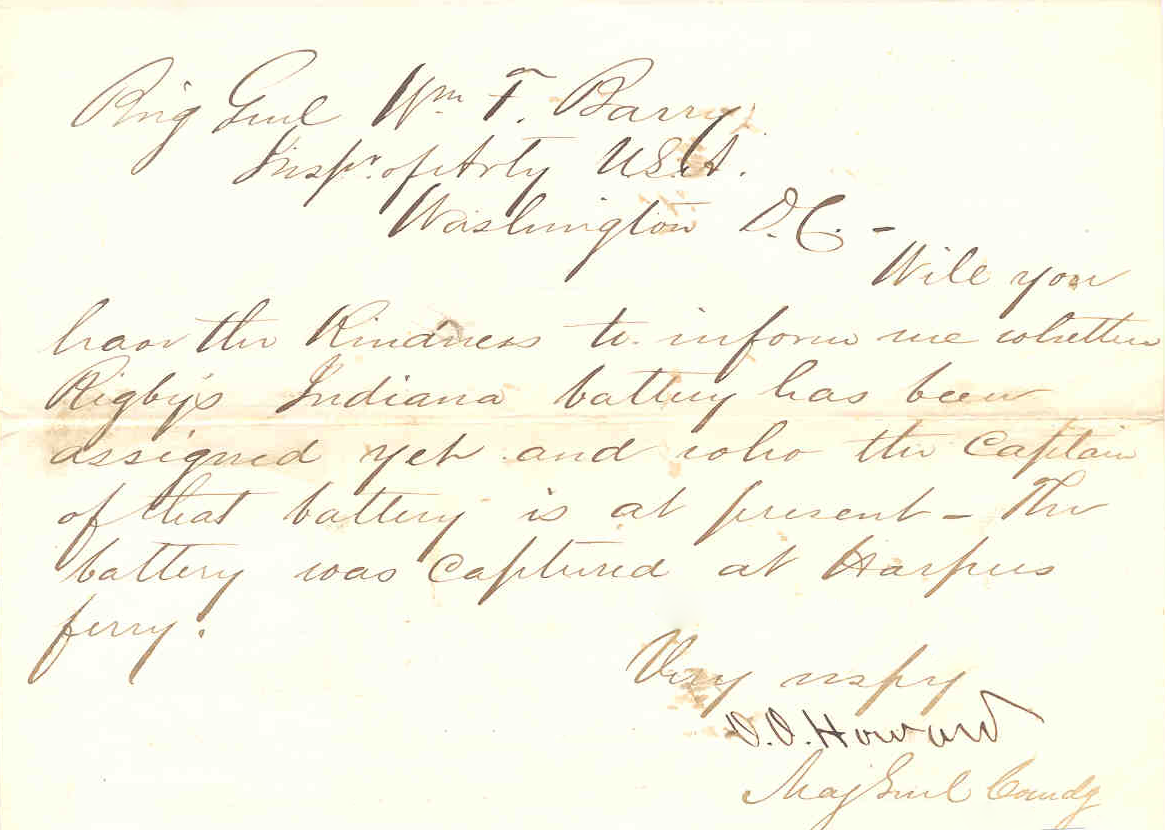 Brig Genl Wm F. Barry
Inspr. of Arty U.S.A.
Washington D.C. -
Will you
have the Kindness to inform me whether
Rigby's Indiana battery has been
assigned yet and who the Captain
of that battery is at present - The
battery was captured at Harpers
ferry.
Very respy
O.O. Howard
Maj Genl Comdg